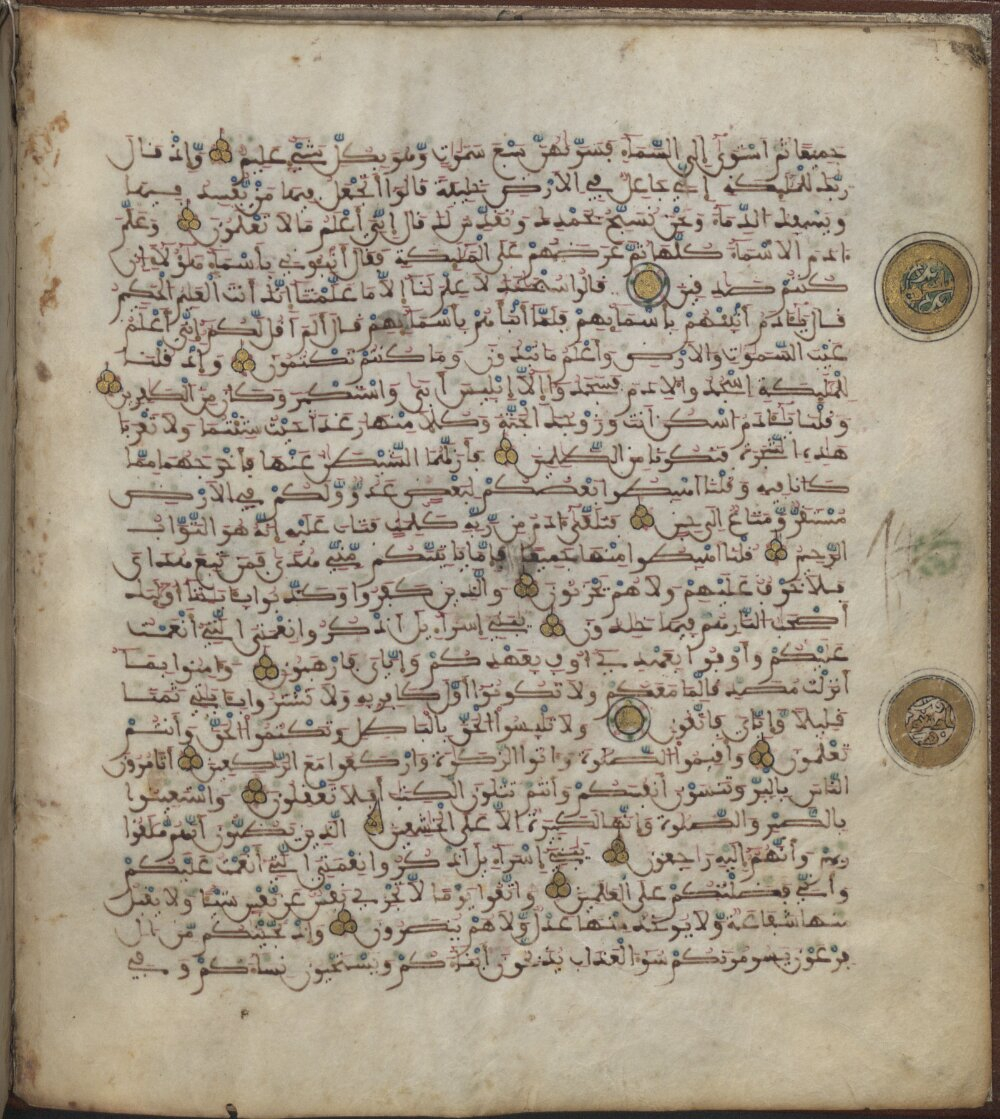 جميعا ثم استوى إلى السماء فسوىهن سبع سموات وهو بكل شيء عليم وإذ قال
ربك للمليكة إني جاعل في الارض خليفة قالوا أتجعل فيها من يفسد فيها
ويسفك الدماء ونحن نسبح بحمدك ونقدس لك قال إني أعلم ما لا تعلمون وعلم
ءادم الاسماء كلها ثم عرضهم على المليكة فقال أنبئوني بأسماء هؤلاء ان
كنتم صدقين قالوا سبحنك لا علم لنا إلا ما علمتنا إنك أنت العليم الحكيم
قال يئادم أنبئهم بأسمايهم فلما أنبأهم بأسمايهم قال ألم اقل لكم إني أعلم
غيب السموات والارض وأعلم ما تبدون وما كنتم تكتمون وإذ قلنا
للمليكة اسجدوا لادم فسجدوا إلا إبليس أبى واستكبر وكان من الكفرين
وقلنا يئادم اسكن انت وزوجك الجنة وكلا منها رغدا حيث شئتما ولا تقربا
هذه الشجرة فتكونا من الظلمين فأزلهما الشيطن عنها فأخرجهما مما
كانا فيه وقلنا اهبطوا بعضكم لبعض عدو ولكم في الارض
مستقر ومتاع إلى حين فتلقى ءادم من ربه كلمت فتاب عليه إنه هو التواب
الرحيم قلنا اهبطوا منها جميعا فإما ياتينكم مني هدى فمن تبع هداي
فلا خوف عليهم ولا هم يحزنون والذين كفروا وكذبوا بئايتنا أوليك
أصحب النار هم فيها خلدون يبني إسراءيل اذكروا نعمتي التي أنعمت
عليكم وأوفوا بعهدي أوف بعهدكم وإياي فارهبون وءامنوا بما
أنزلت مصدقا لما معكم ولا تكونوا أول كافر به ولا تشتروا بئايتي ثمنا
قليلا وإياي فاتقون ولا تلبسوا الحق بالباطل وتكتموا الحق وأنتم
تعلمون وأقيموا الصلوة وءاتوا الزكوة واركعوا مع الركعين أتامرون
الناس بالبر وتنسون أنفسكم وأنتم تتلون الكتب أفلا تعقلون واستعينوا
بالصبر والصلوة وإنها لكبيرة الا على الخشعين الذين يظنون أنهم ملقوا
ربهم وأنهم إليه راجعون يبني إسراءيل اذكروا نعمتي التي أنعمت عليكم
وأني فضلتكم على العلمين واتقوا يوما لا تجزي نفس عن نفس شئا ولا يقبل
منها شفاعة ولا يوخذ منها عدل ولا هم ينصرون وإذ نجينكم من ال
فرعون يسومونكم سوء العذاب يذبحون أبناءكم ويستحيون نساءكم وفي